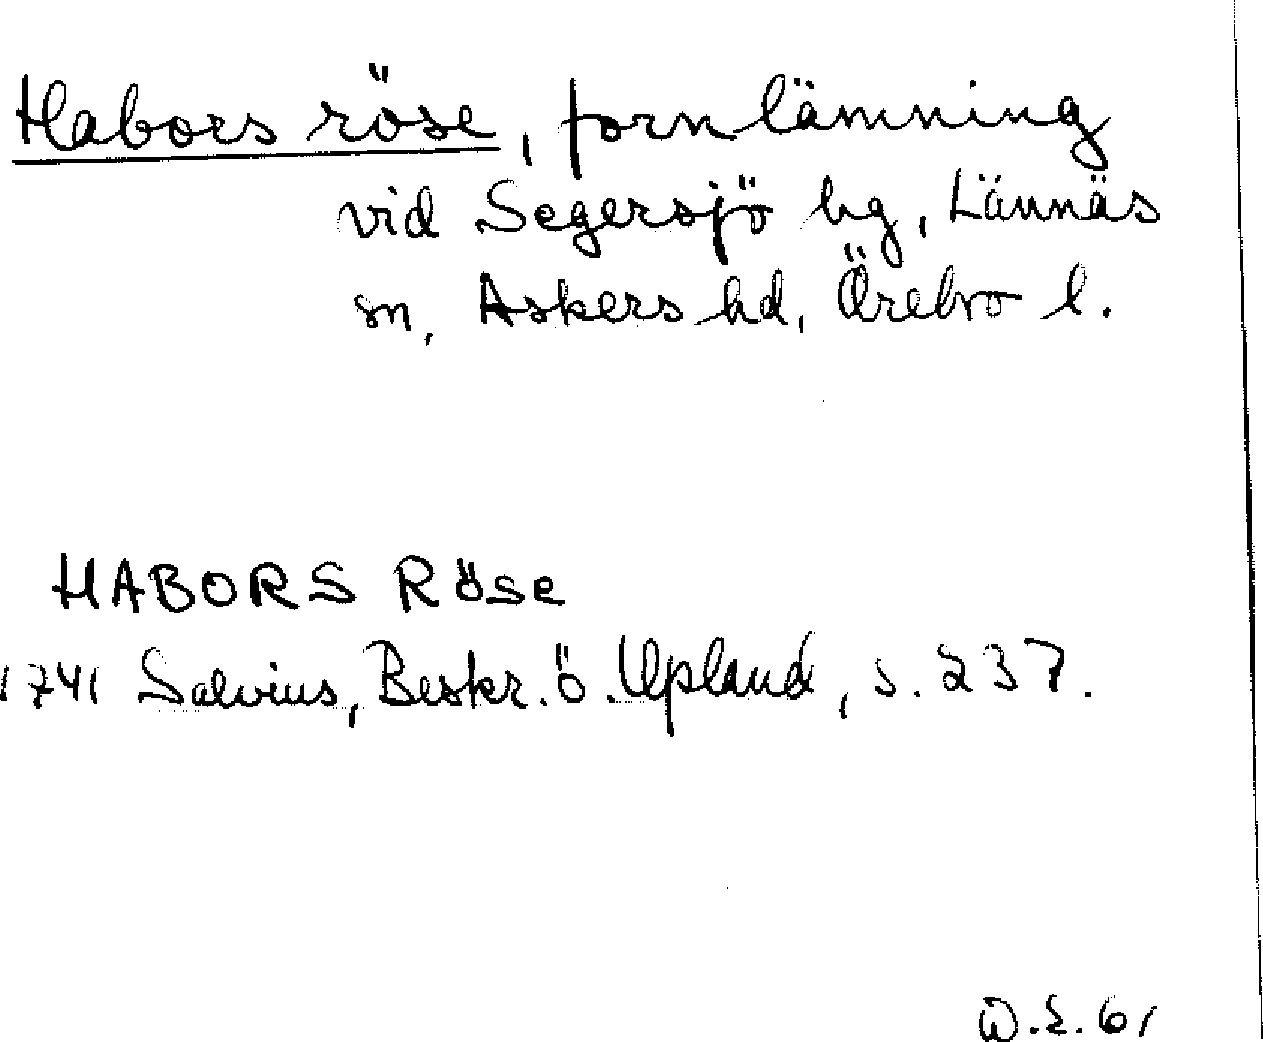 Habors röse, fornlämning
vid Segersjö hg, Lännäs
sn, Askers hd, Örebro l.
HABORS Röse
1741 Salvius, Beskr. ö. Upland, s. 237.
W.E. 61